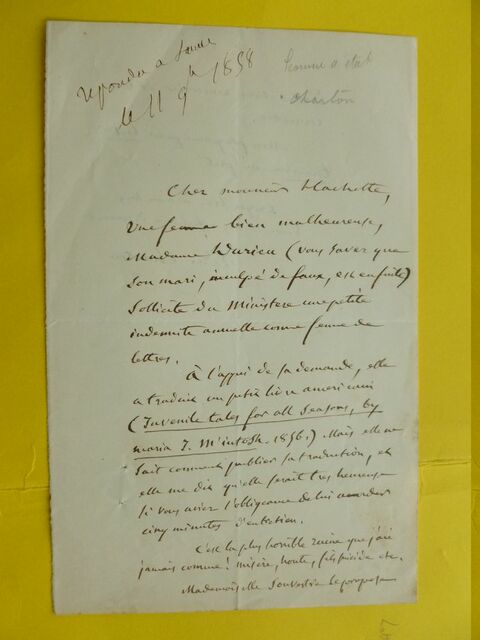 répondu a
le 11 9b 1858
Charton
Cher monsieur Hachette,
Une femme bien malheureuse,
Madame Durieu (vous savez que
son mari, inculpé de faux, est en fuite)
sollicite du Ministère une petite
indemnité annuelle comme femme de
lettres.
À l'appui de sa demande, elle
a traduit un petit livre américain
(Juvenile tales for all seasons, by
maria J. M'intosh. 1856.) Mais elle ne
sait comment publier sa traduction, et
elle me dit qu'elle serait très heureuse
si vous aviez l'obligeance de lui accorder
cinq minutes d'entretien.
C'est la plus horrible ruine que j'aie
jamais connue! misère, honte, etc.
Mademoiselle Souvestre